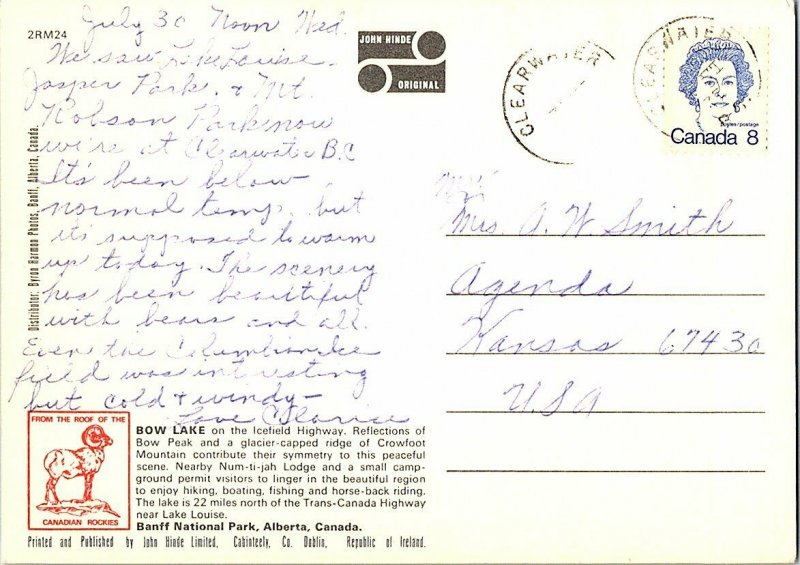 2RM24
July 30 Noon Wed.
We saw Lake Louise,
Jasper Park, & Mt.
Robson Park now
we're at Clearwater B.C
It's been below
normal temp. but
it's supposed to warm
up today. The scenery
has been beautiful
with bears and all.
Even the Columbian Ice
field was interesting
but cold & windy -
Love Clarice
JOHN HINDE
ORIGINAL
CLEARWATER
CLEARWATER
postes/postage
Canada 8
Mrs A. W. Smith
Agenda
Kansas 67430
USA
Distributor: Byron Harmon Photos, Banff, Alberta, Canada.
FROM THE ROOF OF THE
CANADIAN ROCKIES
BOW LAKE on the Icefield Highway. Reflections of
Bow Peak and a glacier-capped ridge of Crowfoot
Mountain contribute their symmetry to this peaceful
scene. Nearby Num-ti-jah Lodge and a small camp-
ground permit visitors to linger in the beautiful region
to enjoy hiking, boating, fishing and horse-back riding.
The lake is 22 miles north of the Trans-Canada Highway
near Lake Louise.
Banff National Park, Alberta, Canada.
Printed and Published by John Hinde Limited, Cabinteely, Co. Dublin, Republic of Ireland.